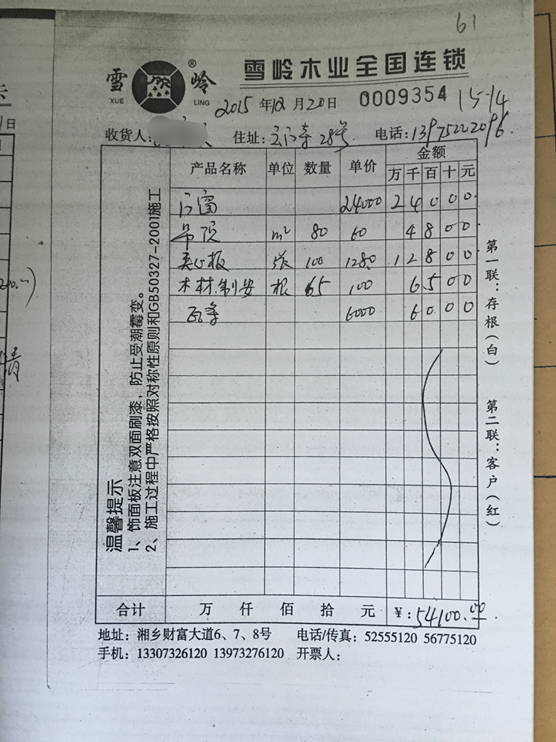 61
雪 岭 ®
XUE LING
雪岭木业全国连锁
2015 年 12 月 20 日 0009354 15-14
收货人: 住址: 28号 电话: 13975222096
产品名称 单位 数量 单价 金额
万 千 百 十 元
门窗 24000 2 4 0 0 0
吊顶 m² 80 60 4 8 0 0
夹心板 张 100 1280 1 2 8 0 0
木材.制安 根 65 100 6 5 0 0
6000 6 0 0 0
温馨提示
1、饰面板注意双面刷漆，防止受潮霉变。
2、施工过程中严格按照对称性原则和GB50327-2001施工
第一联：存根（白）
第二联：客户（红）
合计 万 仟 佰 拾 元 ¥: 54100.00
地址：湘乡财富大道6、7、8号 电话/传真：52555120 56775120
手机：13307326120 13973276120 开票人：